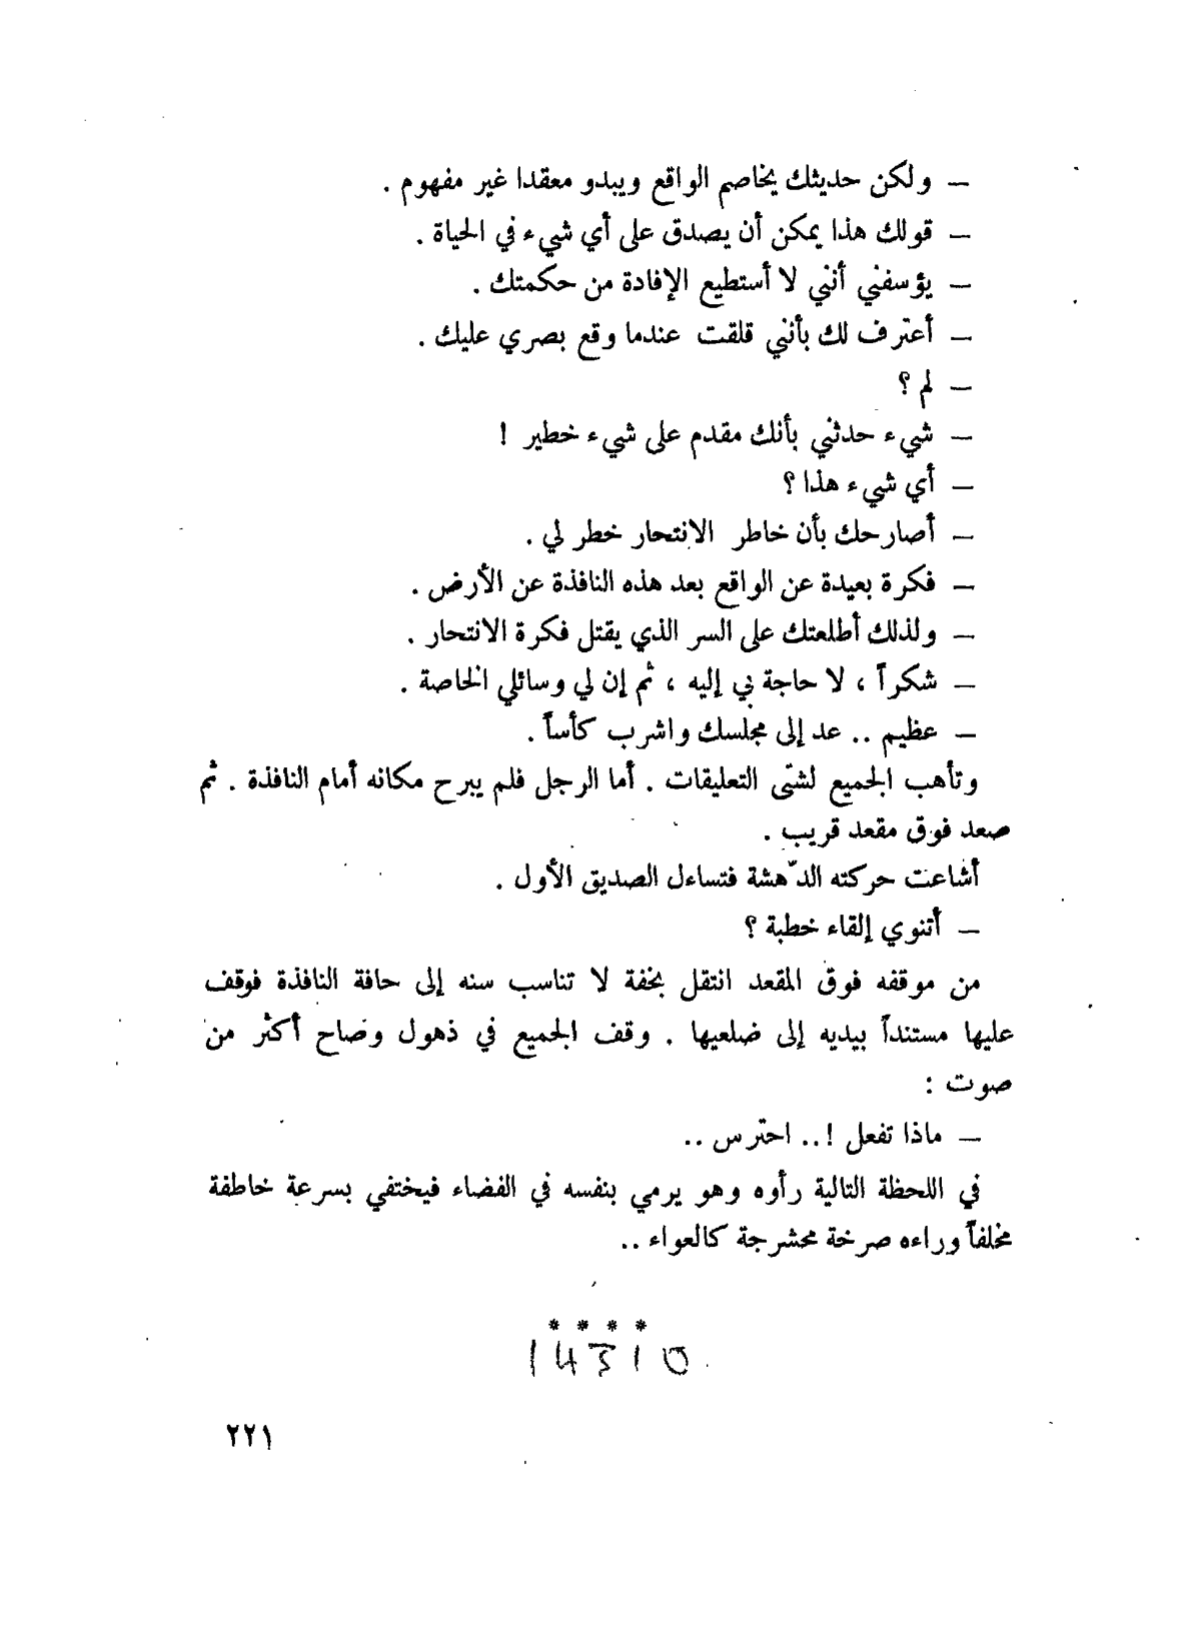 — ولكن حديثك يخاصم الواقع ويبدو معقدا غير مفهوم .
— قولك هذا يمكن أن يصدق على أي شيء في الحياة .
— يؤسفني أنني لا أستطيع الإفادة من حكمتك .
— أعترف لك بأنني قلقت عندما وقع بصري عليك .
— لم ؟
— شيء حدثني بأنك مقدم على شيء خطير !
— أي شيء هذا ؟
— أصارحك بأن خاطر الانتحار خطر لي .
— فكرة بعيدة عن الواقع بعد هذه النافذة عن الأرض .
— ولذلك أطلعتك على السر الذي يقتل فكرة الانتحار .
— شكراً ، لا حاجة بي إليه ، ثم إن لي وسائلي الخاصة .
— عظيم .. عد إلى مجلسك واشرب كأساً .
وتأهب الجميع لشتّى التعليقات . أما الرجل فلم يبرح مكانه أمام النافذة . ثم
صعد فوق مقعد قريب .
أشاعت حركته الدّهشة فتساءل الصديق الأول .
— أتنوي إلقاء خطبة ؟
من موقفه فوق المقعد انتقل بخفة لا تناسب سنه إلى حافة النافذة فوقف
عليها مستنداً بيديه إلى ضلعيها . وقف الجميع في ذهول وصاح أكثر من
صوت :
— ماذا تفعل !.. احترس ..
في اللحظة التالية رأوه وهو يرمي بنفسه في الفضاء فيختفي بسرعة خاطفة
مخلفاً وراءه صرخة محشرجة كالعواء ..
* * * *
14310
٢٢١